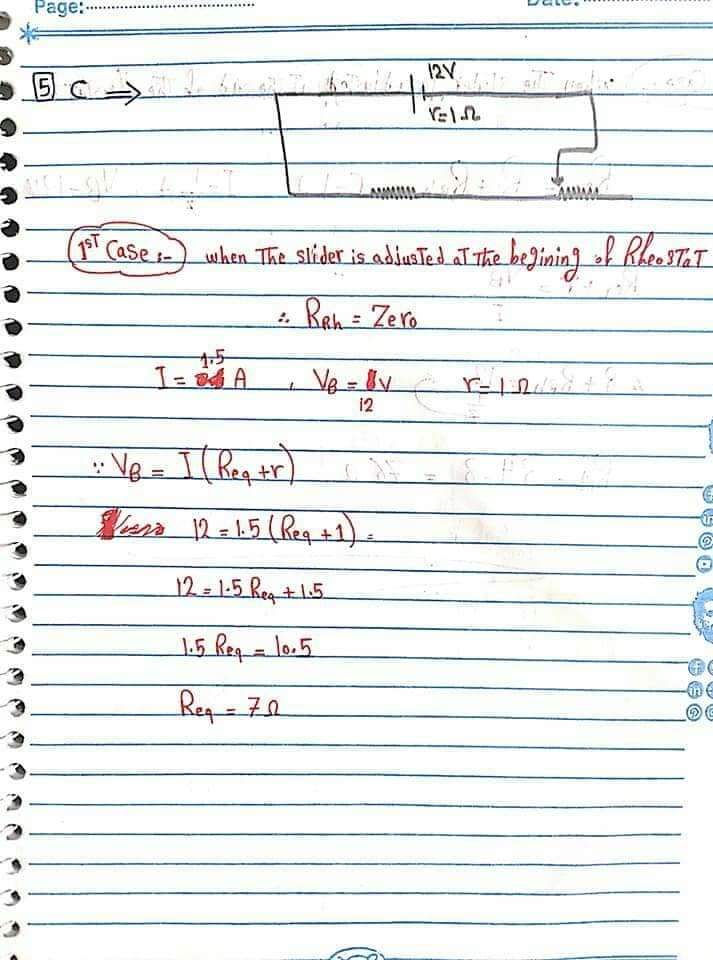 Page:
Date:
5 C ⇒
12V
r=1Ω
1ST Case :- when The slider is adjusTed aT The begining of RheosTaT
∴ RRh = Zero
1.5
I = A , VB = V r = 1Ω
12
∵ VB = I (Req + r)
12 = 1.5 (Req + 1) =
12 = 1.5 Req + 1.5
1.5 Req = 10.5
Req = 7Ω